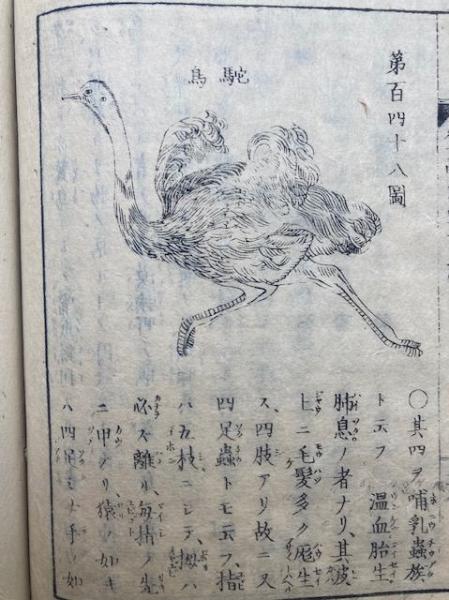 第百四十八圖
駝鳥
〇其四ヲ哺乳蟲族
ト云フ 温血胎生
肺息ノ者ナリ、其皮
上ニ毛髪多ク厖生
ス、四肢アリ故ニ又
四足蟲トモ云フ、指
ハ五枝ニシテ、拇ハ
必ズ離リ、毎指ノ尖
ニ甲アリ、猿ノ如キ
ハ四足ミナ手ノ如